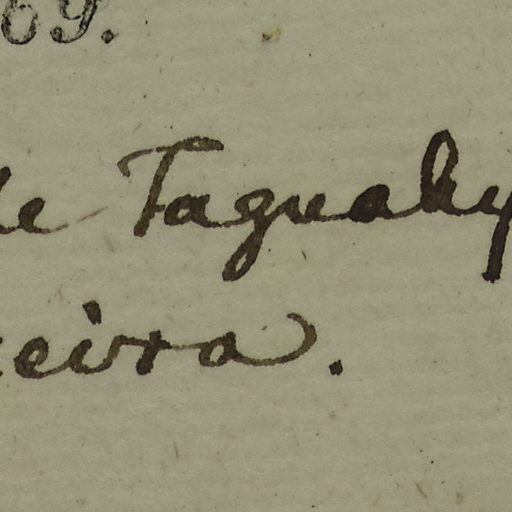 69.
de Taguahy
eira.